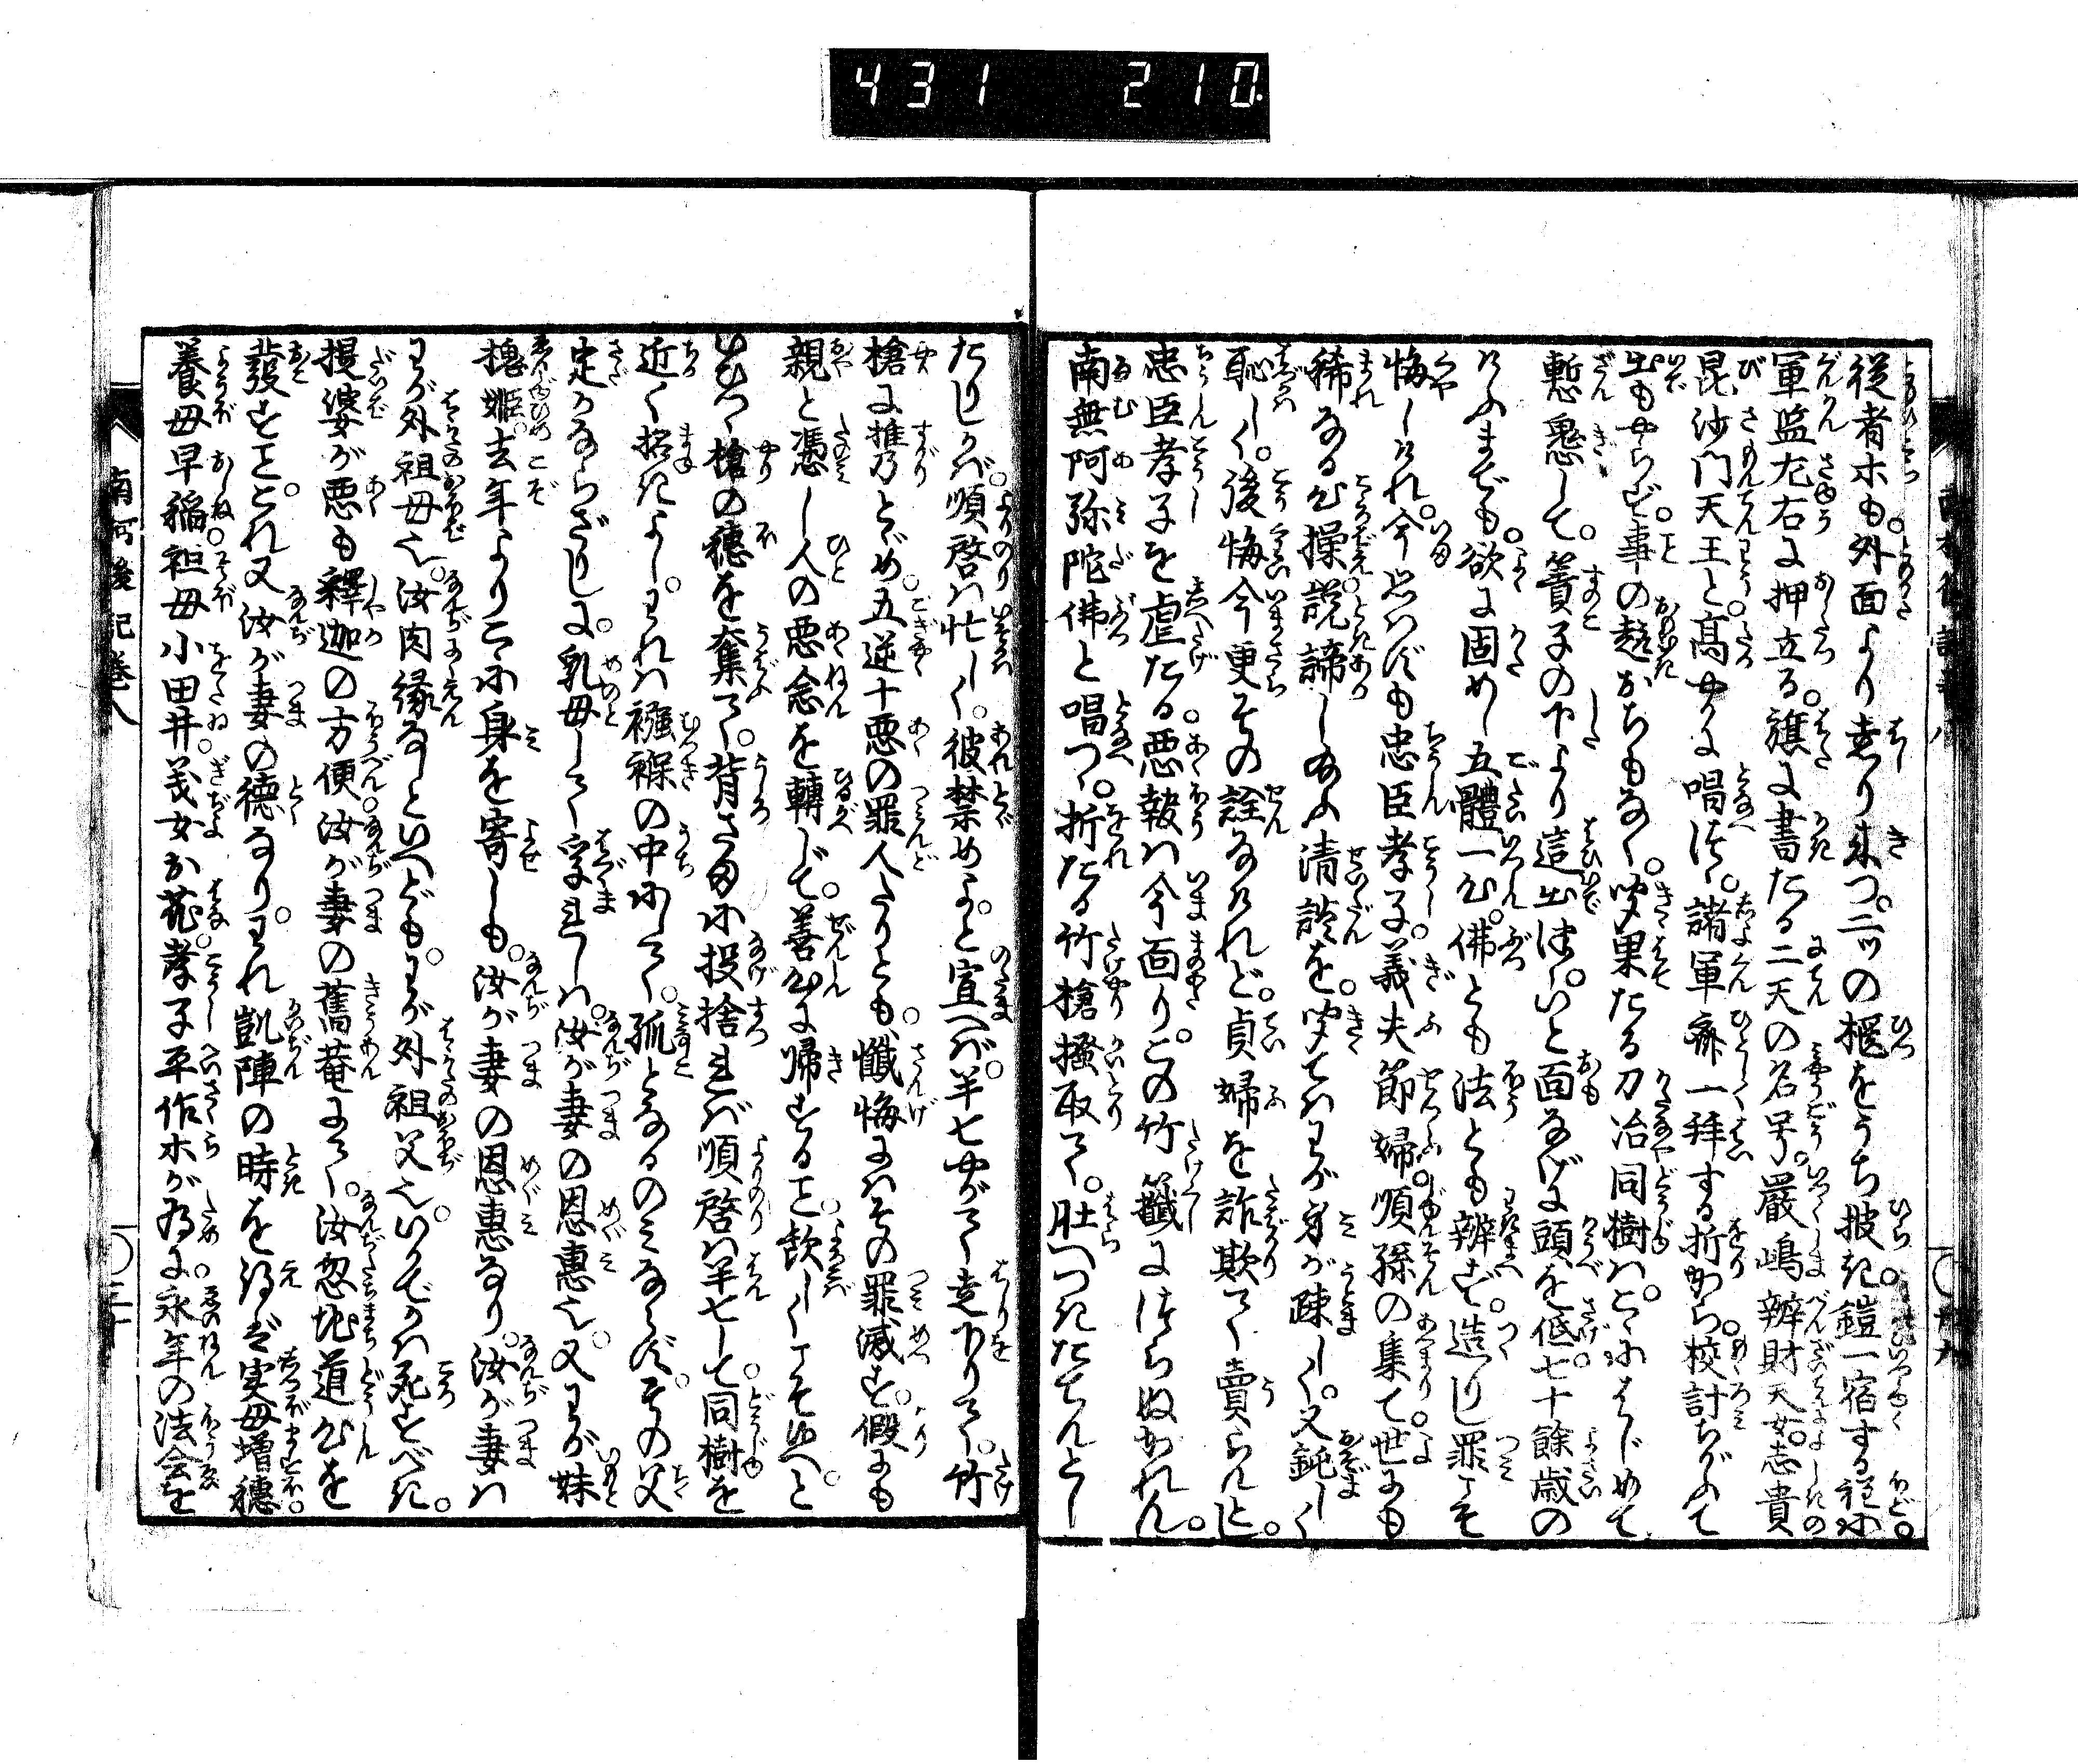 431 210
従者ホも。外面より走り来つ。二ツの櫃をうち披き。鎧一宿する程に。
軍監左右に押立る。旗に書たる二天の名号。嚴嶋辨財天女。志貴
毘沙门天王と高やかに唱れば。諸軍齊一拝する折から。校計ちがふて
出もやらず。事の趣おちもなく。聞果たる刀冶同樹は。こゝにはじめて
慙愧して。簀子の下より這出つ。いと面なげに頭を低。七十餘歳の
けふまでも。欲に固めし五體一心。佛とも法とも辨ず。造りし罪こそ
悔しけれ。今思はずも忠臣孝子。義夫節婦。順孫の集て世にも
稀なる心操。説諦しあふ清談を。聞てはわが身が疎しく。又鈍しく
恥しく。後悔今更その詮なけれど。貞婦を詐欺て賣らんとし。
忠臣孝子を虐たる。悪報は今面り。この竹籤につらぬかれん。
南無阿弥陀佛と唱つゝ。折たる竹槍掻取て。肚へつきたてんとし
たりしかば。順啓は忙しく。彼禁めよ。と宣へば。半七やがて走下りて。竹
槍に携りとゞめ。五逆十悪の罪人たりとも。懺悔にはその罪滅す。假にも
親と憑し人の悪念を轉して。善心に帰すること。歓しくこそ候へと
いひつゝ槍の穂を奪て。背さまに投捨れば順啓は半七して。同樹を
近く招きよし。われは襁褓の中にして。孤となるのみならず。その父
定かならざりしに。乳母して孚まれしは。汝が妻の恩惠也。又わが妹
穂姫。去年よりこゝに身を寄しも。汝が妻の恩惠なり。汝が妻は
わが外祖母也。汝肉縁なしといへども。わが外祖父也。いかでかは死すべき。
提婆が悪も釋迦の方便。汝が妻の舊菴にて。汝忽地道心を
發すこと。これ又汝が妻の德なり。われ凱陣の時を得ば実母増穂
養母早稲。祖母小田井。義女お花。孝子平作ホが為に永年の法会を
南柯後記巻八
〇三十